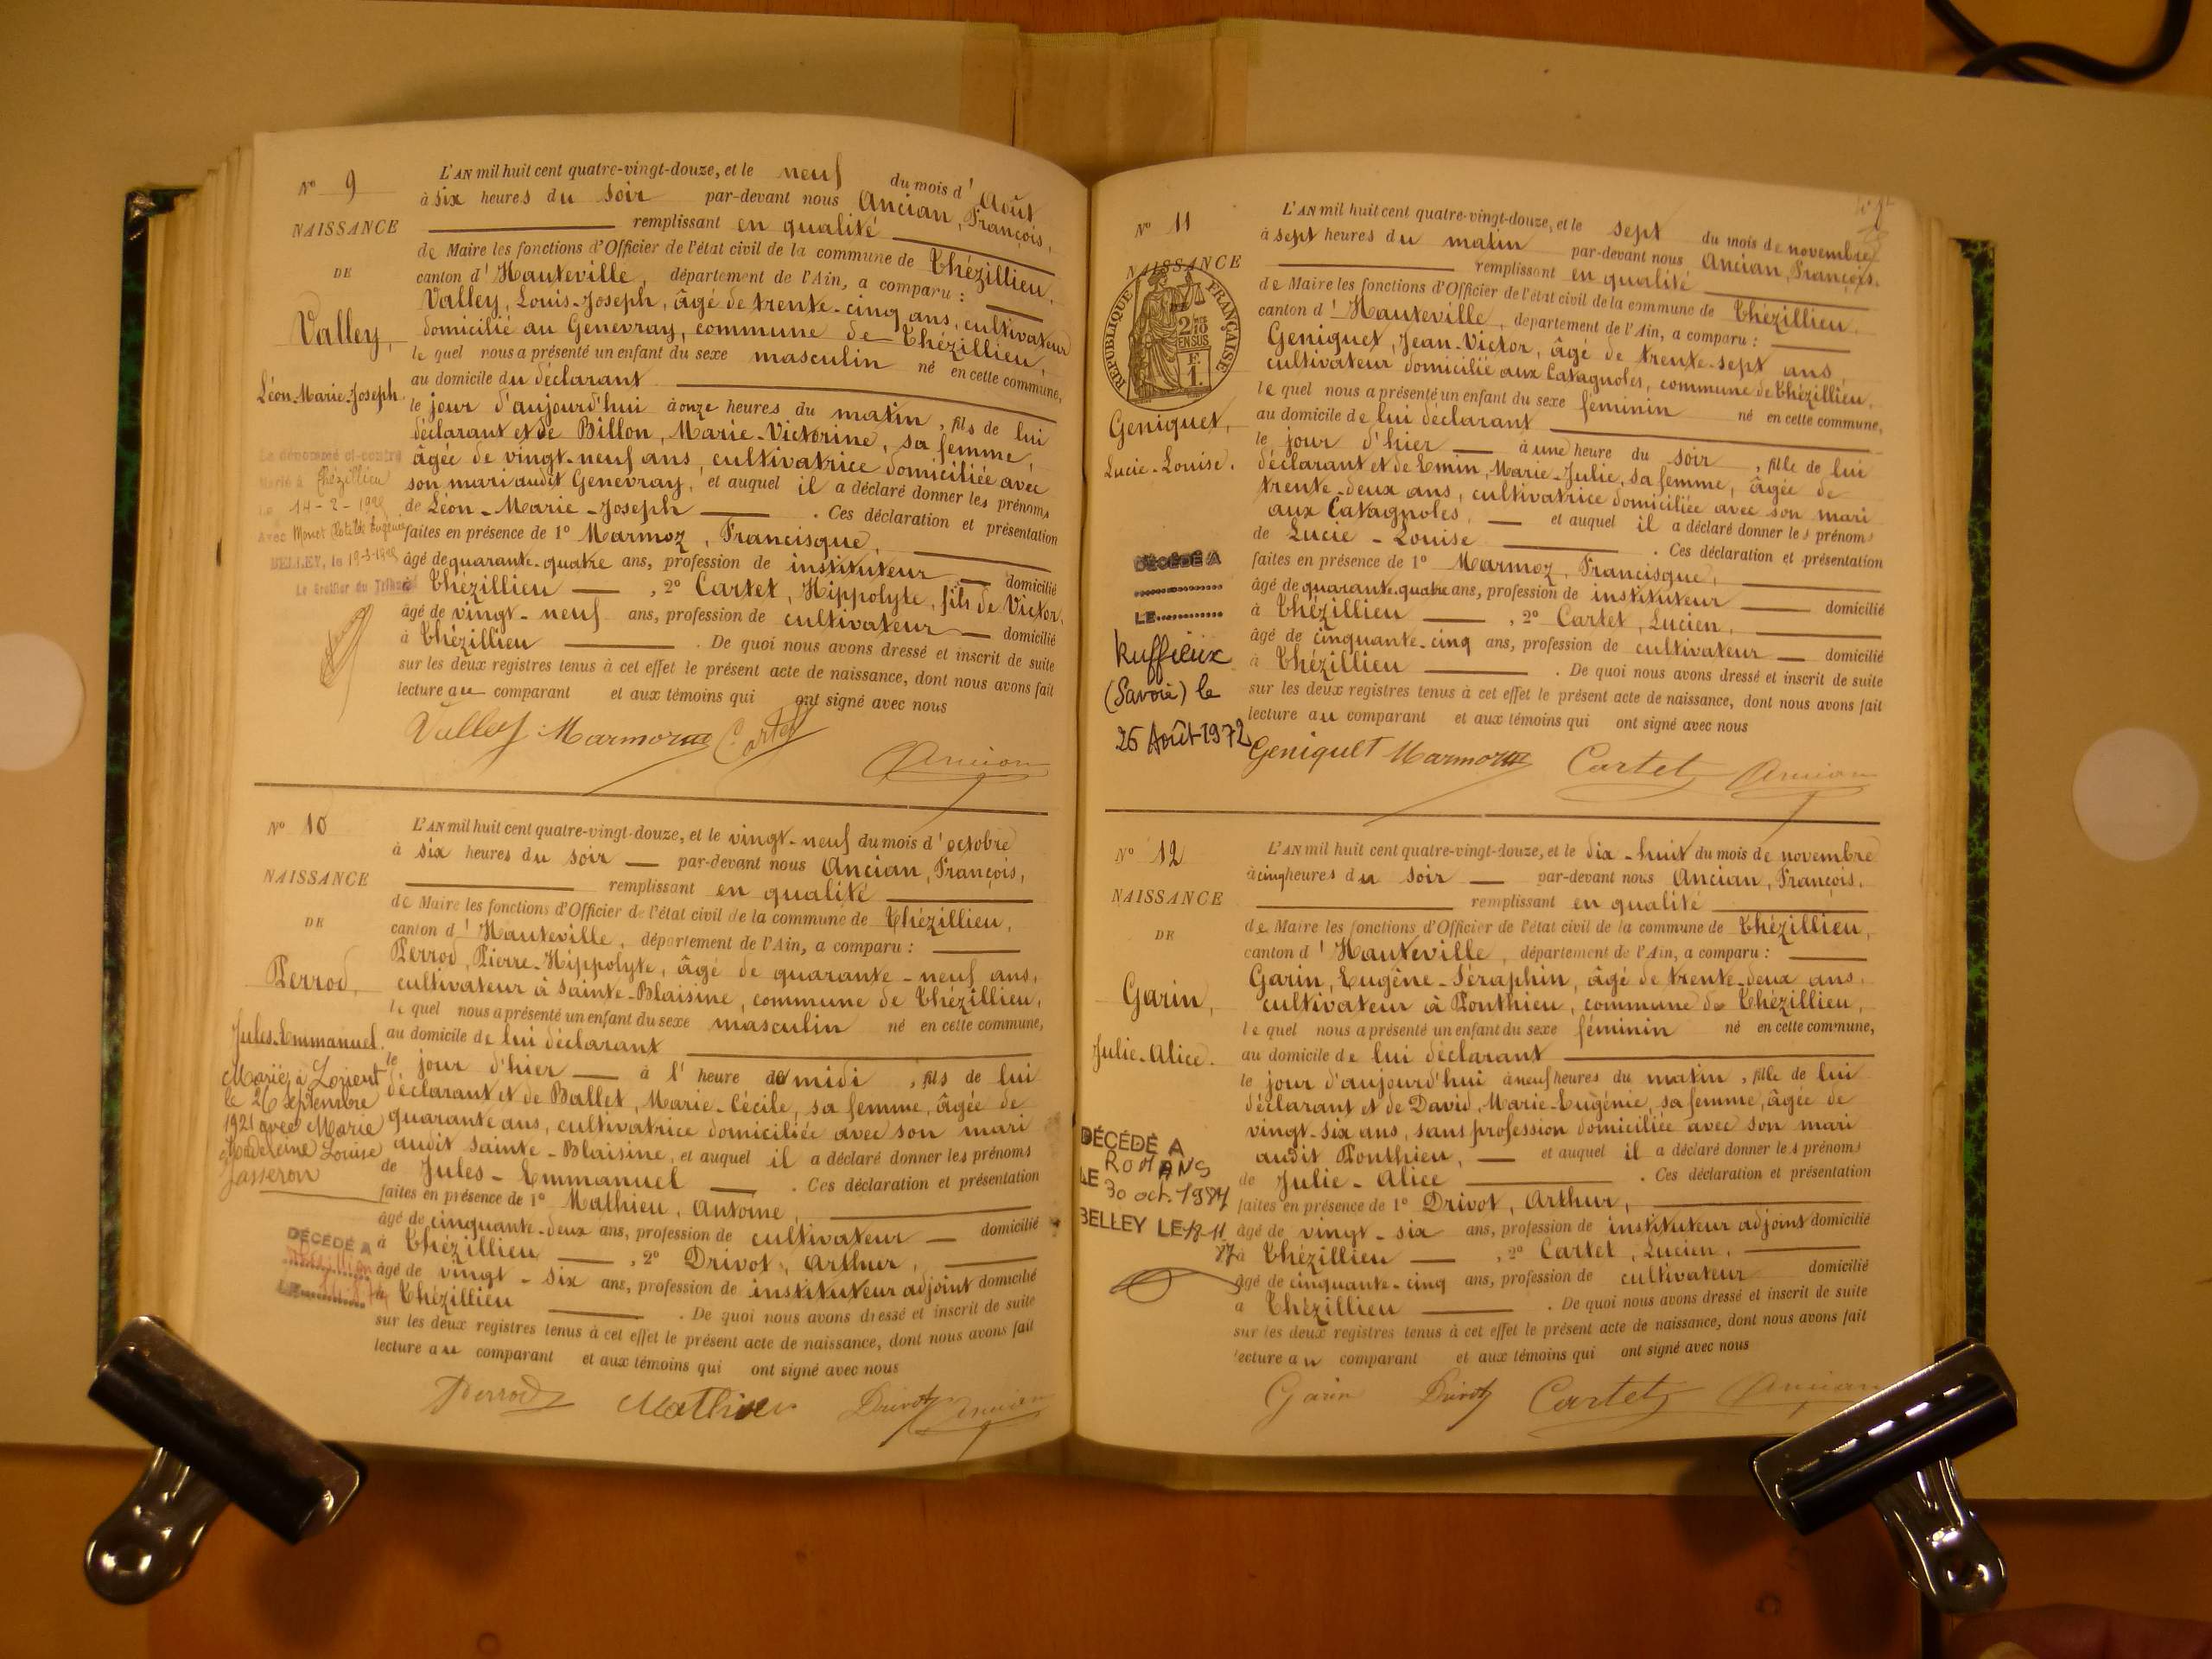 N° 9
NAISSANCE
DE
Valley,
Léon-Marie-Joseph.
Le dénommé ci-contre
Marié à Thézillieu
le 14-2-
Avec Monet
BELLEY, le
Le Greffier du Tribunal
L'AN mil huit cent quatre-vingt-douze, et le neuf du mois d'Août
à six heures du soir par-devant nous Ancian, François,
remplissant en qualité
de Maire les fonctions d'Officier de l'état civil de la commune de Thézillieu,
canton d'Hauteville, département de l'Ain, a comparu :
Valley, Louis-Joseph, âgé de trente-cinq ans, cultivateur
domicilié au Genevray, commune de Thézillieu,
le quel nous a présenté un enfant du sexe masculin né en cette commune,
au domicile du déclarant
le jour d'aujourd'hui à onze heures du matin, fils de lui
déclarant et de Billon, Marie-Victorine, sa femme,
âgée de vingt-neuf ans, cultivatrice domiciliée avec
son mari audit Genevray, et auquel il a déclaré donner les prénoms
de Léon-Marie-Joseph . Ces déclaration et présentation
faites en présence de 1° Marmoz, Francisque,
âgé de quarante-quatre ans, profession de instituteur domicilié
à Thézillieu , 2° Cartet, Hippolyte, fils de Victor,
âgé de vingt-neuf ans, profession de cultivateur domicilié
à Thézillieu . De quoi nous avons dressé et inscrit de suite
sur les deux registres tenus à cet effet le présent acte de naissance, dont nous avons fait
lecture au comparant et aux témoins qui ont signé avec nous
Valley Marmoz C. Cartet
Ancian
N° 10
NAISSANCE
DE
Perrod,
Jules-Emmanuel.
Marié à Lorient
le 26 septembre
1921 avec Marie
Madeleine Louise
Jasseron
DÉCÉDÉ A
LE
L'AN mil huit cent quatre-vingt-douze, et le vingt-neuf du mois d'octobre
à six heures du soir par-devant nous Ancian, François,
remplissant en qualité
de Maire les fonctions d'Officier de l'état civil de la commune de Thézillieu,
canton d'Hauteville, département de l'Ain, a comparu :
Perrod, Pierre-Hippolyte, âgé de quarante-neuf ans,
cultivateur à Sainte-Blaisine, commune de Thézillieu,
le quel nous a présenté un enfant du sexe masculin né en cette commune,
au domicile de lui déclarant
le jour d'hier à l'heure de midi, fils de lui
déclarant et de Ballet, Marie-Cécile, sa femme, âgée de
quarante ans, cultivatrice domiciliée avec son mari
audit Sainte-Blaisine, et auquel il a déclaré donner les prénoms
de Jules-Emmanuel . Ces déclaration et présentation
faites en présence de 1° Mathieu, Antoine,
âgé de cinquante-deux ans, profession de cultivateur domicilié
à Thézillieu , 2° Drivot, Arthur,
âgé de vingt-six ans, profession de instituteur adjoint domicilié
à Thézillieu . De quoi nous avons dressé et inscrit de suite
sur les deux registres tenus à cet effet le présent acte de naissance, dont nous avons fait
lecture au comparant et aux témoins qui ont signé avec nous
Perrod Mathieu Drivot Ancian
N° 11
NAISSANCE
RÉPUBLIQUE FRANÇAISE
2/10 EN SUS
Geniquet,
Lucie-Louise.
DÉCÉDÉ A
LE
Ruffieux
(Savoie) le
26 Août 1972
L'AN mil huit cent quatre-vingt-douze, et le sept du mois de novembre
à sept heures du matin par-devant nous Ancian, François,
remplissant en qualité
de Maire les fonctions d'Officier de l'état civil de la commune de Thézillieu,
canton d'Hauteville, département de l'Ain, a comparu :
Geniquet, Jean-Victor, âgé de trente-sept ans,
cultivateur domicilié aux Catagnoles, commune de Thézillieu,
le quel nous a présenté un enfant du sexe féminin né en cette commune,
au domicile de lui déclarant
le jour d'hier à une heure du soir, fille de lui
déclarant et de Emin, Marie-Julie, sa femme, âgée de
trente-deux ans, cultivatrice domiciliée avec son mari
aux Catagnoles, et auquel il a déclaré donner les prénoms
de Lucie-Louise . Ces déclaration et présentation
faites en présence de 1° Marmoz, Francisque,
âgé de quarante-quatre ans, profession de instituteur domicilié
à Thézillieu , 2° Cartet, Lucien,
âgé de cinquante-cinq ans, profession de cultivateur domicilié
à Thézillieu . De quoi nous avons dressé et inscrit de suite
sur les deux registres tenus à cet effet le présent acte de naissance, dont nous avons fait
lecture au comparant et aux témoins qui ont signé avec nous
Geniquet Marmoz Cartet Ancian
N° 12
NAISSANCE
DE
Garin,
Julie-Alice.
DÉCÉDÉ A
ROMANS
LE 30 oct. 1987
BELLEY LE 12-11
87
L'AN mil huit cent quatre-vingt-douze, et le dix-huit du mois de novembre
à cinq heures du soir par-devant nous Ancian, François,
remplissant en qualité
de Maire les fonctions d'Officier de l'état civil de la commune de Thézillieu,
canton d'Hauteville, département de l'Ain, a comparu :
Garin, Eugène-Séraphin, âgé de trente-deux ans,
cultivateur à Ponthieu, commune de Thézillieu,
le quel nous a présenté un enfant du sexe féminin né en cette commune,
au domicile de lui déclarant
le jour d'aujourd'hui à neuf heures du matin, fille de lui
déclarant et de David, Marie-Eugénie, sa femme, âgée de
vingt-six ans, sans profession domiciliée avec son mari
audit Ponthieu, et auquel il a déclaré donner les prénoms
de Julie-Alice . Ces déclaration et présentation
faites en présence de 1° Drivot, Arthur,
âgé de vingt-six ans, profession de instituteur adjoint domicilié
à Thézillieu , 2° Cartet, Lucien,
âgé de cinquante-cinq ans, profession de cultivateur domicilié
à Thézillieu . De quoi nous avons dressé et inscrit de suite
sur les deux registres tenus à cet effet le présent acte de naissance, dont nous avons fait
lecture au comparant et aux témoins qui ont signé avec nous
Garin Drivot Cartet Ancian